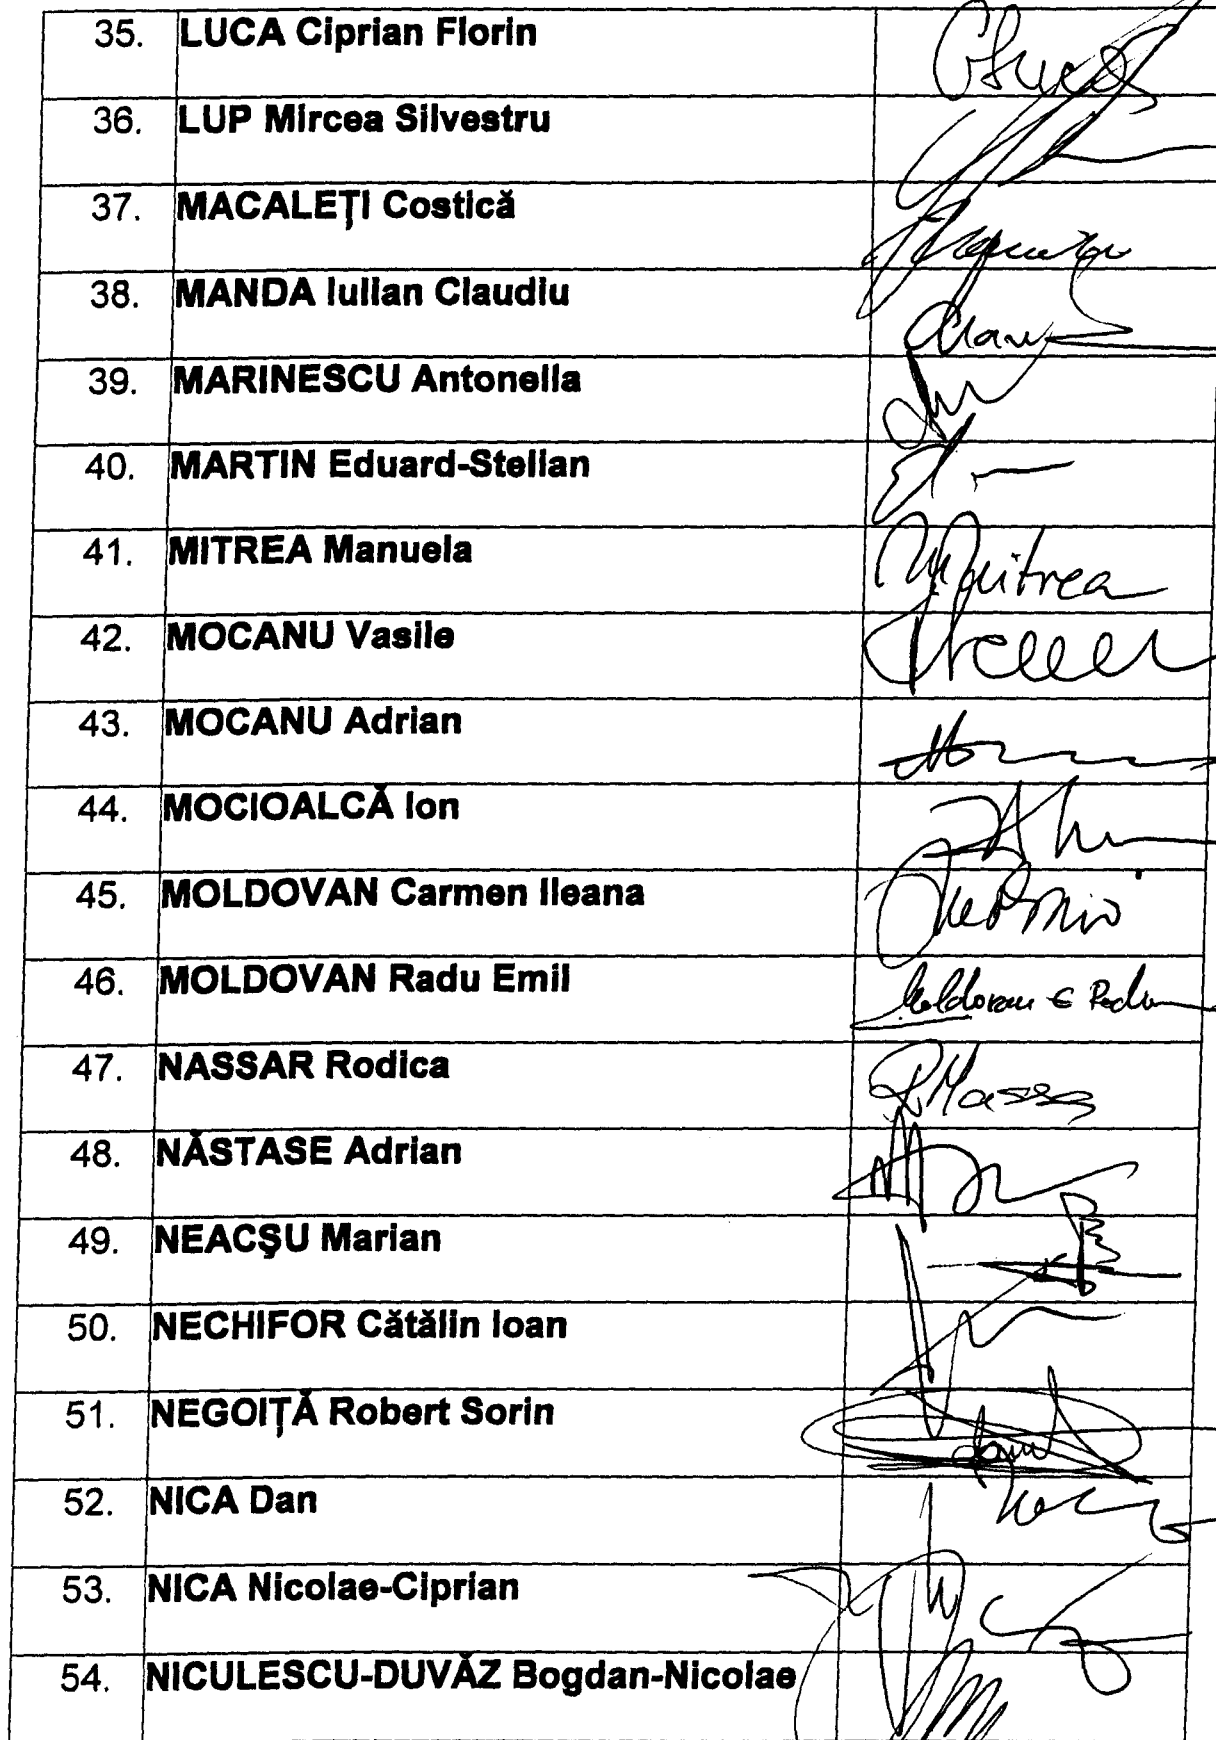 35. LUCA Ciprian Florin
36. LUP Mircea Silvestru
37. MACALEŢI Costică
38. MANDA Iulian Claudiu
39. MARINESCU Antonella
40. MARTIN Eduard-Stelian
41. MITREA Manuela MMitrea
42. MOCANU Vasile
43. MOCANU Adrian
44. MOCIOALCĂ Ion
45. MOLDOVAN Carmen Ileana
46. MOLDOVAN Radu Emil Moldovan E Radu
47. NASSAR Rodica
48. NĂSTASE Adrian
49. NEACŞU Marian
50. NECHIFOR Cătălin Ioan
51. NEGOIŢĂ Robert Sorin
52. NICA Dan
53. NICA Nicolae-Ciprian
54. NICULESCU-DUVĂZ Bogdan-Nicolae